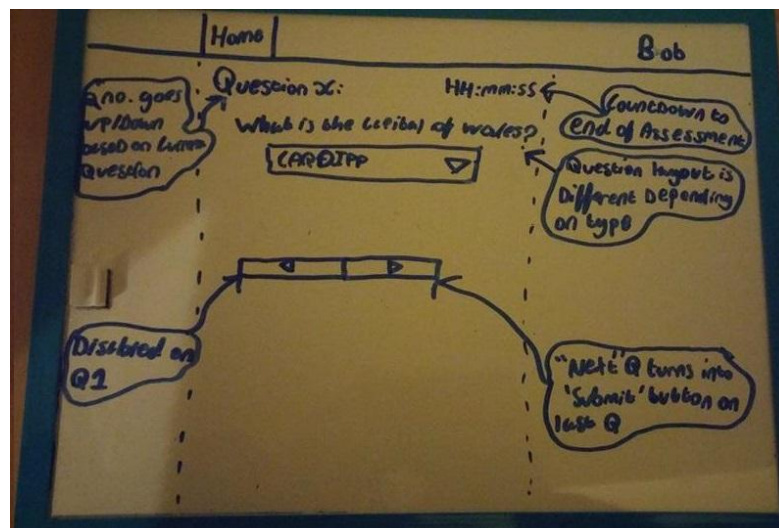 Home
Bob
Q no. goes
up/Down
based on
Question
Question x:
HH:mm:ss
Countdown to
end of Assessment
What is the capital of wales?
CARDIFF
Question layout is
Different Depending
on type
Disabled on
Q1
"Next" Q turns into
'Submit' button on
last Q